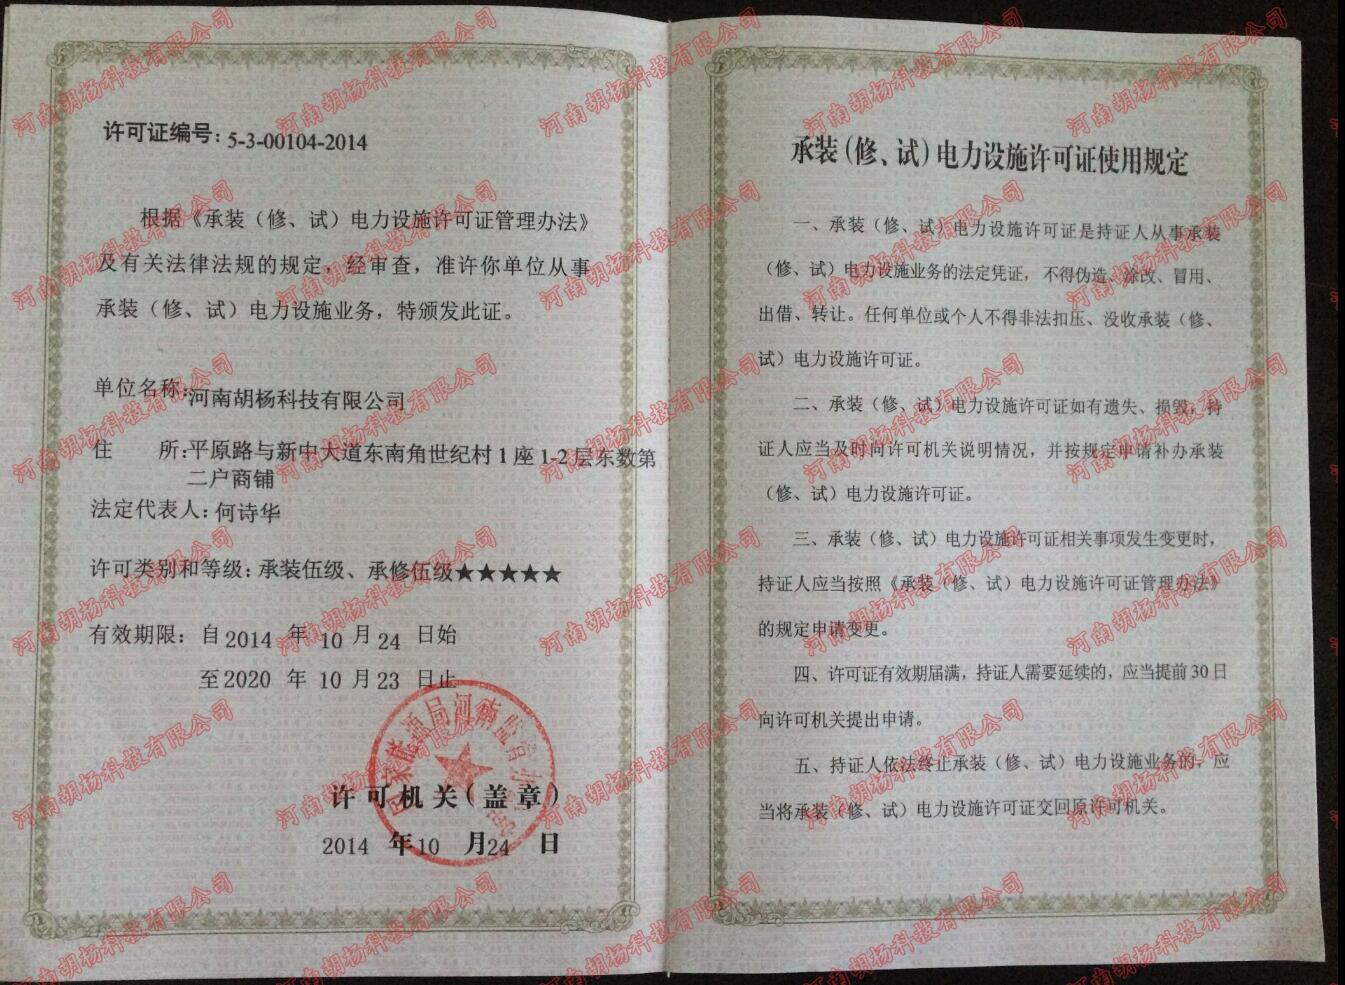 许可证编号：5-3-00104-2014
根据《承装（修、试）电力设施许可证管理办法》
及有关法律法规的规定，经审查，准许你单位从事
承装（修、试）电力设施业务，特颁发此证。
单位名称：河南胡杨科技有限公司
住 所：平原路与新中大道东南角世纪村1座1-2层东数第
二户商铺
法定代表人：何诗华
许可类别和等级：承装伍级、承修伍级★★★★★
有效期限：自2014 年 10 月 24 日始
至2020 年 10 月 23 日止
国家能源局河南监管办
许可机关（盖章）
2014 年 10 月 24 日
承装（修、试）电力设施许可证使用规定
一、承装（修、试）电力设施许可证是持证人从事承装
（修、试）电力设施业务的法定凭证，不得伪造、涂改、冒用、
出借、转让。任何单位或个人不得非法扣压、没收承装（修、
试）电力设施许可证。
二、承装（修、试）电力设施许可证如有遗失、损毁，持
证人应当及时向许可机关说明情况，并按规定申请补办承装
（修、试）电力设施许可证。
三、承装（修、试）电力设施许可证相关事项发生变更时，
持证人应当按照《承装（修、试）电力设施许可证管理办法》
的规定申请变更。
四、许可证有效期届满，持证人需要延续的，应当提前30日
向许可机关提出申请。
五、持证人依法终止承装（修、试）电力设施业务的，应
当将承装（修、试）电力设施许可证交回原许可机关。
河南胡杨科技有限公司